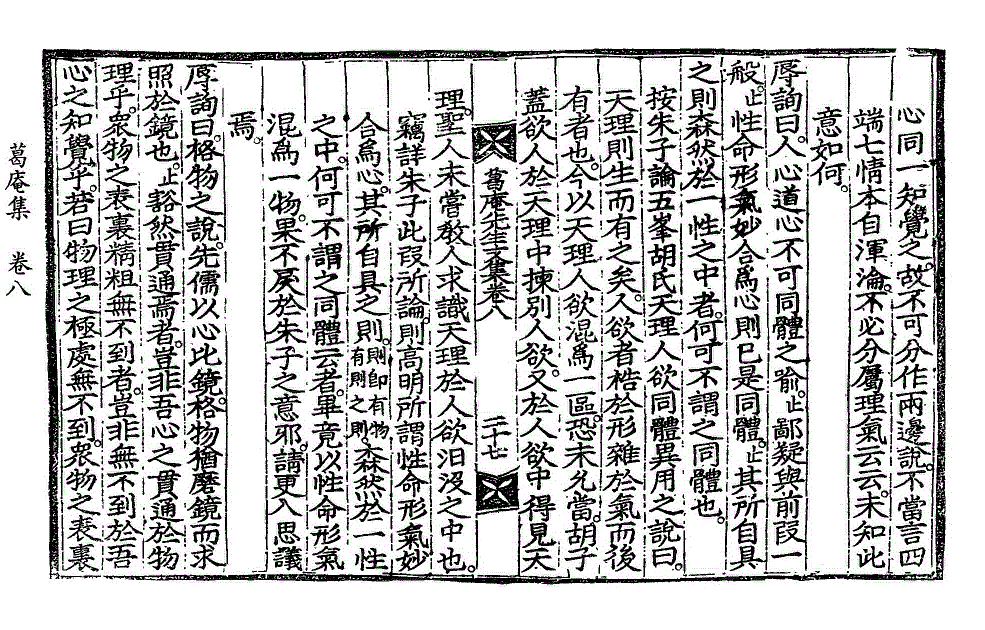 心同一知覺之。故不可分作兩邊說。不當言四
端七情本自渾淪。不必分屬理氣云云。未知此
意如何。
辱詢曰。人心道心不可同體之喩。止 鄙疑與前段一
般。止 性命形氣妙合爲心。則已是同體。止 其所自具
之則森然於一性之中者。何可不謂之同體也。
按朱子論五峯胡氏天理人欲同體異用之說曰。
天理則生而有之矣。人欲者梏於形雜於氣而後
有者也。今以天理人欲混爲一區。恐未允當。胡子
蓋欲人於天理中揀別人欲。又於人欲中得見天
葛庵先生文集卷八 二十七
理。聖人未嘗敎人求識天理於人欲汨沒之中也。
竊詳朱子此段所論。則高明所謂性命形氣妙
合爲心。其所自具之則。則卽有物有則之則。森然於一性
之中。何可不謂之同體云者。畢竟以性命形氣
混爲一物。果不戾於朱子之意邪。請更入思議
焉。
辱詢曰。格物之說。先儒以心比鏡。格物猶磨鏡而求
照於鏡也。止 豁然貫通焉者。豈非吾心之貫通於物
理乎。衆物之表裏精粗無不到者。豈非無不到於吾
心之知覺乎。若曰物理之極處無不到。衆物之表裏
葛庵集 卷八